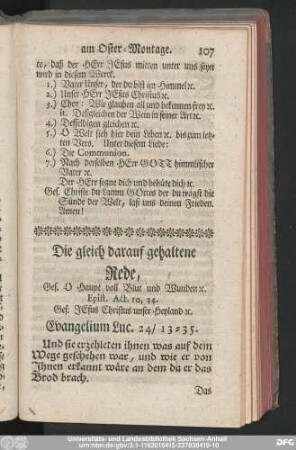 am Oster-Montage. 107
te, daß der HErr JEsus mitten unter uns seyn
wird in diesem Werck.
1.) Vater Unser, der du bist im Himmel ꝛc.
2.) Unser HErr JEsus Christus ꝛc.
3.) Chor: Wir glauben all und bekennen frey ꝛc.
it. Desgleichen der Wein in seiner Art ꝛc.
4.) Desselbigen gleichen ꝛc.
5.) O Welt sieh hier dein Leben ꝛc. bis zum letz-
ten Vers. Unter diesem Liede:
6.) Die Communion.
7.) Nach derselben HErr GOTT himmlischer
Vater ꝛc.
Der HErr segne dich und behüte dich ꝛc.
Ges. Christe du Lamm GOttes der du trägst die
Sünde der Welt, laß uns deinen Frieden.
Amen!
Die gleich darauf gehaltene
Rede,
Ges. O Haupt voll Blut und Wunden ꝛc.
Epist. Act. 10, 34.
Ges. JEsus Christus unser Heyland ꝛc.
Evangelium Luc. 24/ 13=35.
Und sie erzehleten ihnen was auf dem
Wege geschehen war, und wie er von
Ihnen erkannt wäre an dem da er das
Brod brach.
Das
Universitäts- und Landesbibliothek Sachsen-Anhalt
urn:nbn:de:gbv:3:1-1192015415-237838419-10
DFG